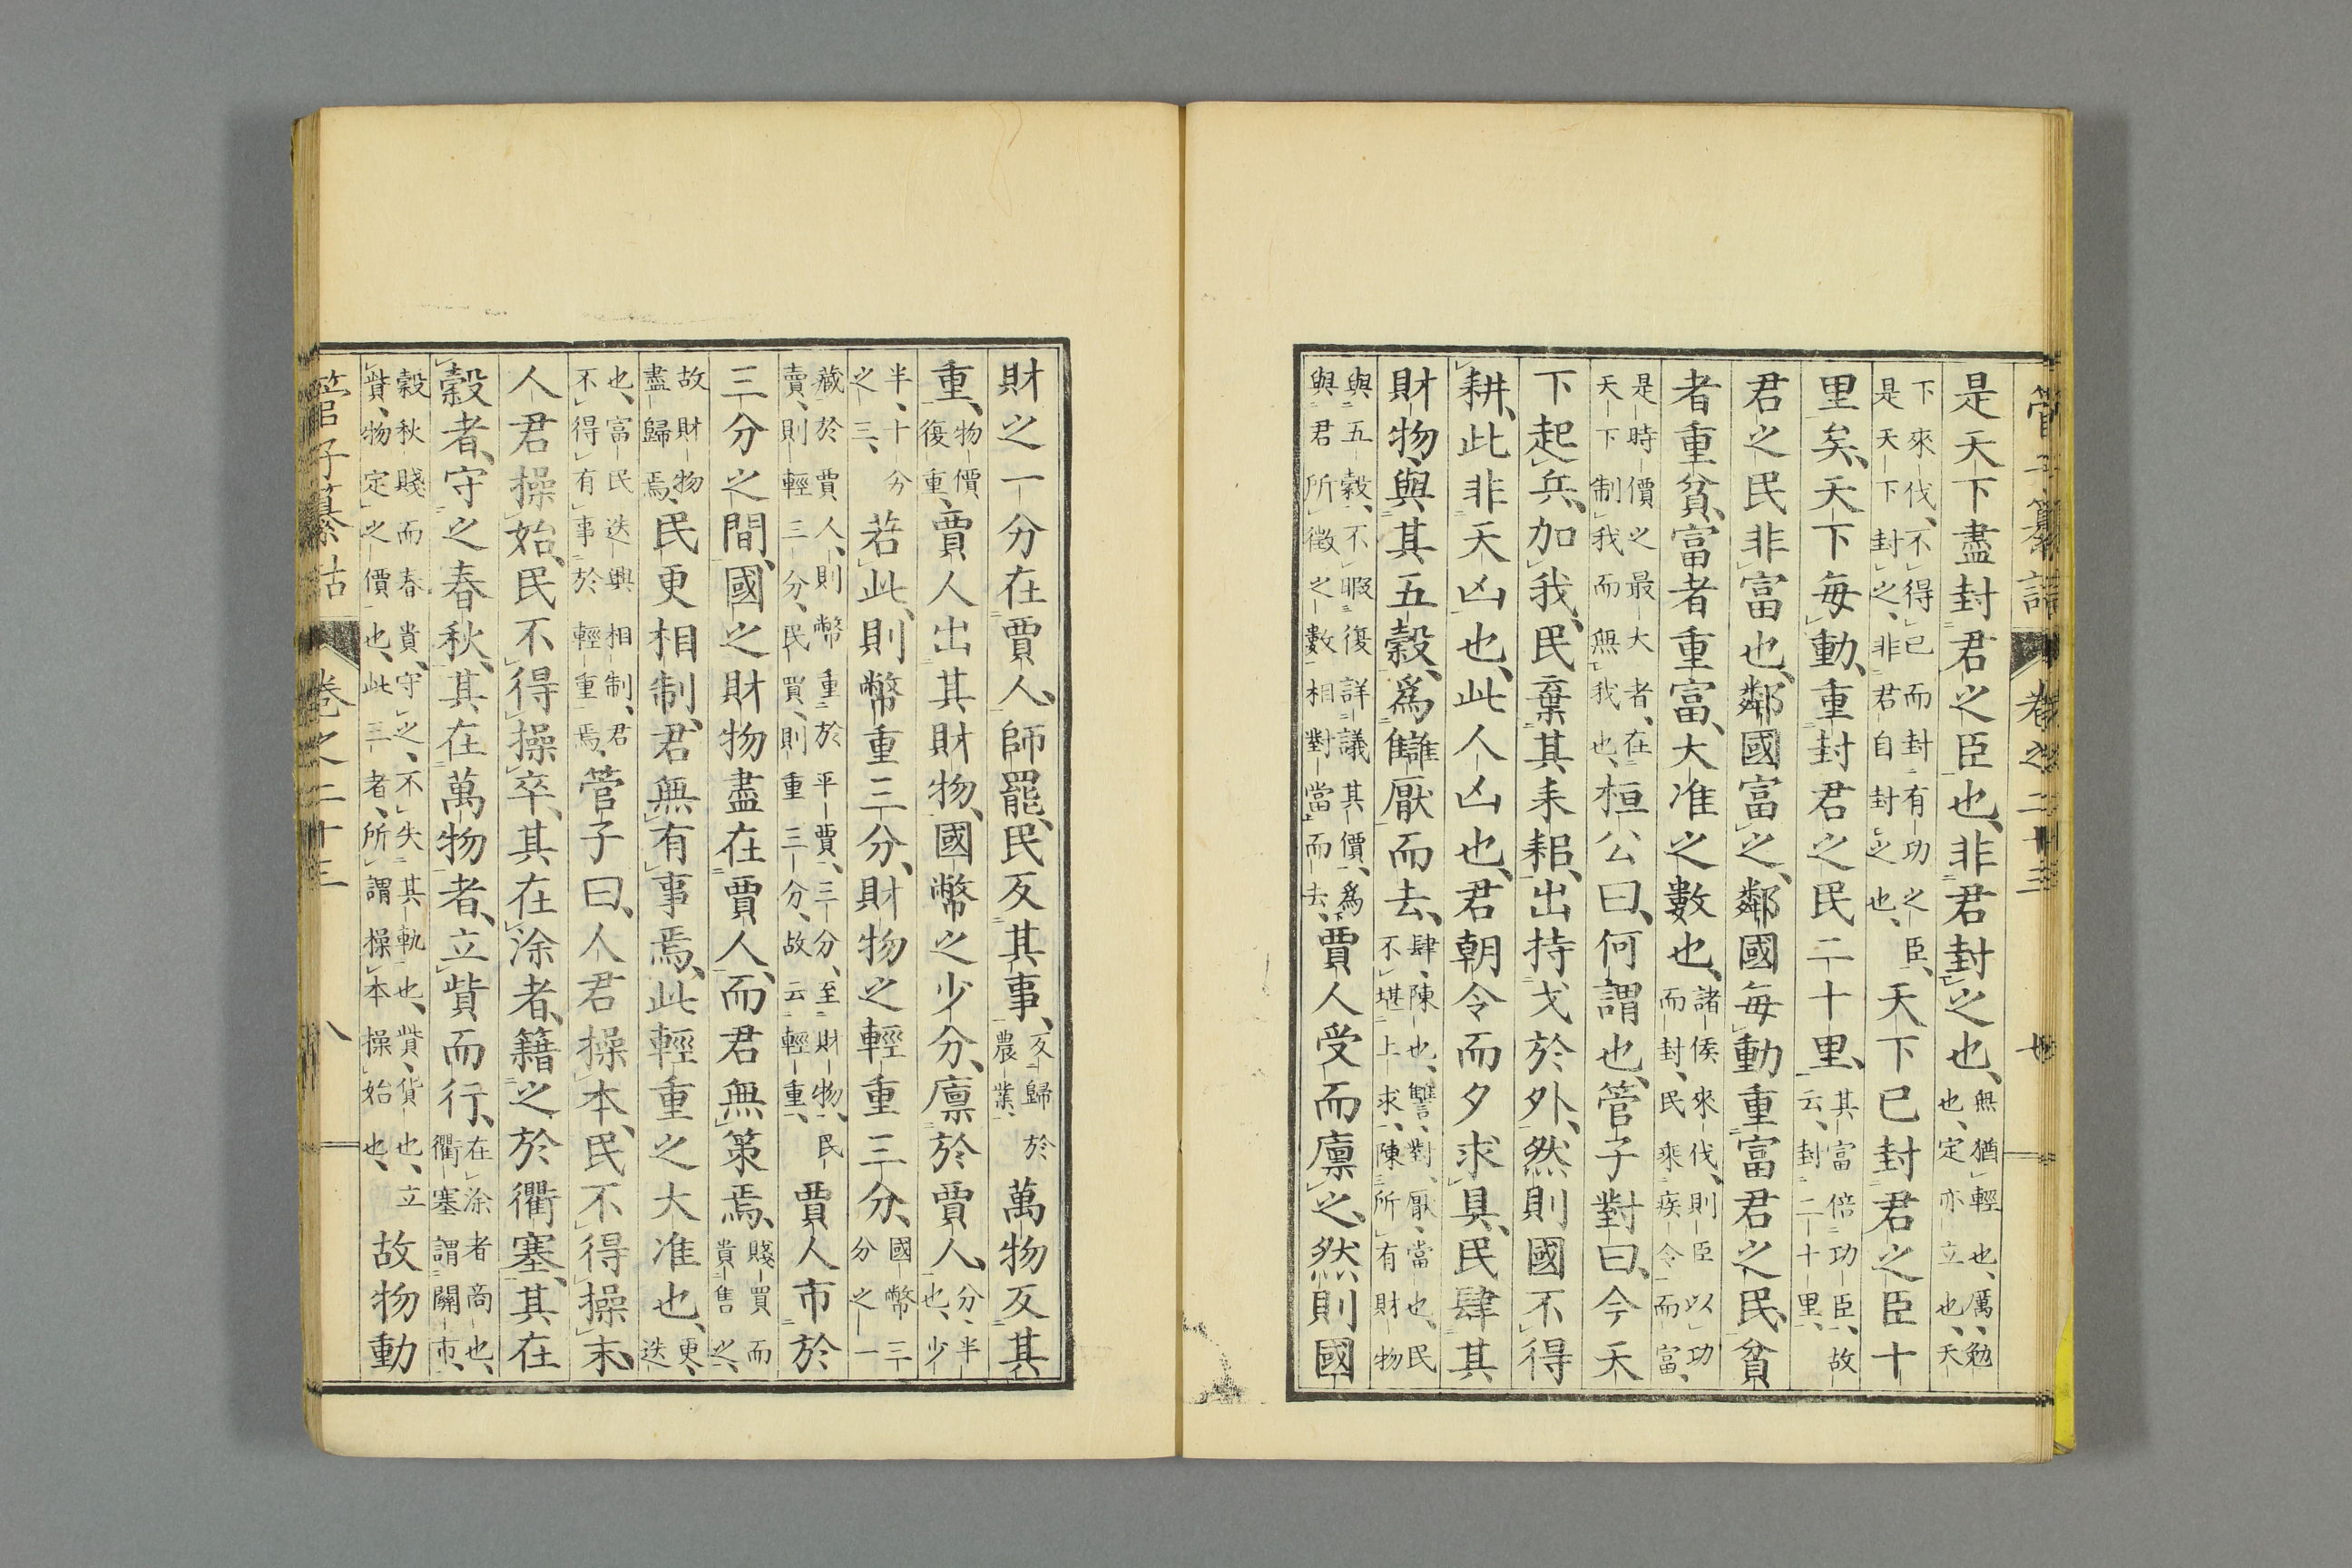 管子纂詁 卷之二十三
是天下盡封君之臣也、非君封之也、無猶輕也、厲、勉也、定亦立也、天
下來伐、不得已而封有功之臣、是天下封之、非君自封之也、天下已封君之臣十
里矣、天下毎動、重封君之民二十里、其富倍功臣、故云封二十里、
君之民非富也、鄰國富之、鄰國毎動重富君之民、貧
者重貧、富者重富、大准之數也、諸侯來伐、則臣以功而封、民乘疾令而富、
是時價之最大者、在天下制我而無我也、桓公曰、何謂也、管子對曰、今天
下起兵、加我、民棄其耒耜、出持戈於外、然則國不得
耕、此非天凶也、此人凶也、君朝令而夕求具、民肆其
財物、與其五穀、爲讎厭而去、肆、陳也、讐、對、厭、當也、民不堪上求、陳所有財物
與五穀、不暇復詳議其價、爲與君所徵之數相對當而去、賈人受而廩之、然則國
財之一分在賈人、師罷、民反其事、反歸農業、於萬物反其
重、物價復重、賈人出其財物、國幣之少分、廩於賈人、分、半也、少
半、十分之三、若此、則幣重三分、財物之輕重三分、國幣三分之一
藏於賈人、則幣重於平賈、三分、至財物、民賣、則輕三分、民買、則重三分、故云輕重、賈人市於
三分之間、國之財物盡在賈人、而君無策焉、賤買而貴售之、
故財物盡歸焉、民更相制、君無有事焉、此輕重之大准也、更、迭
也、富民迭興相制、君不得有事於輕重焉、管子曰、人君操本、民不得操末、
人君操始、民不得操卒、其在涂者、籍之於衢塞、其在
穀者、守之春秋、其在萬物者、立貲而行、在涂者商也、衢塞謂關市、
穀秋賤而春貴、守之、不失其軌也、貲、貨也、立貲、物定之價也、此三者、所謂操本操始也、故物動
管子纂詁 卷之二十三 八